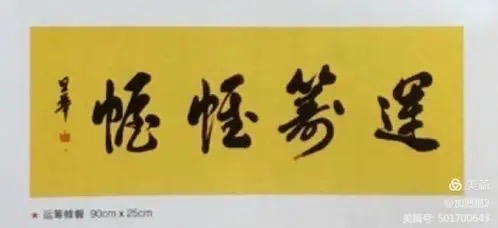 運籌帷幄
★ 运筹帷幄 90cm x 25cm
美篇
美篇号: 501700643